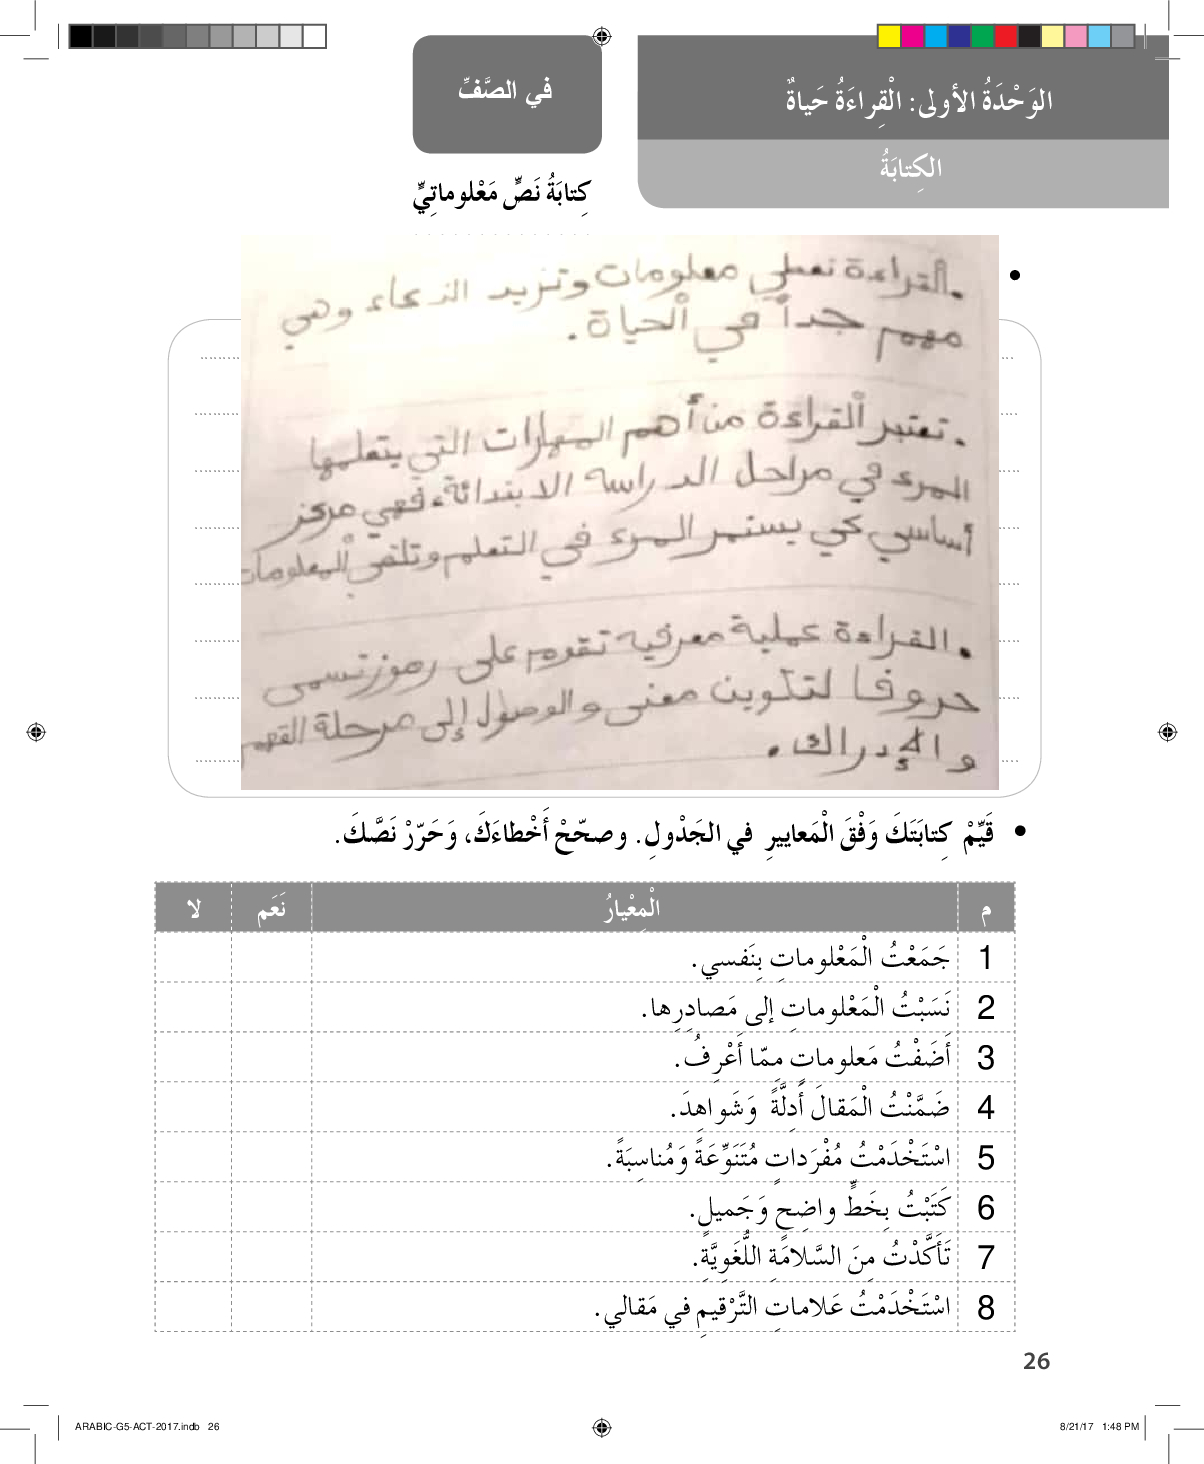 الوَحْدَةُ الأولى: الْقِراءَةُ حَياةٌ
في الصَّفِّ
الكِتابَةُ
كِتابَةُ نَصٍّ مَعْلوماتِيٍّ
. ألقراءة تعطي معلومات وتزيد الذكاء وهي
مهم جداً في ألحياة.
. تعتبر ألقراءة من أهم المهارات التي يتعلمها
المرء في مراحل الدراسة الابتدائة، فهي مركز
أساسي كي يستمر المرء في التعلم وتلقي ألمعلومات
. القراءة عملية معرفيه تقوم على رموز تسمى
حروفا لتكوين معنى والوصول إلى مرحلة الفهم
والإدراك.
• قَيِّمْ كِتابَتَكَ وَفْقَ الْمَعاييرِ في الجَدْولِ. وصحّحْ أَخْطاءَكَ، وَحَرّرْ نَصَّكَ.
م الْمِعْيارُ نَعَم لا
1 جَمَعْتُ الْمَعْلوماتِ بِنَفسي.
2 نَسَبْتُ الْمَعْلوماتِ إلى مَصادِرِها.
3 أَضَفْتُ مَعلوماتٍ مِمّا أَعْرِفُ.
4 ضَمَّنْتُ الْمَقالَ أَدِلَّةً وَشَواهِدَ.
5 اسْتَخْدَمْتُ مُفْرَداتٍ مُتَنَوِّعَةً وَمُناسِبَةً.
6 كَتَبْتُ بِخَطٍّ واضِحٍ وَجَميلٍ.
7 تَأَكَّدْتُ مِنَ السَّلامَةِ اللُّغَوِيَّةِ.
8 اسْتَخْدَمْتُ عَلاماتِ التَّرْقيمِ في مَقالي.
26
ARABIC-G5-ACT-2017.indb 26
8/21/17 1:48 PM